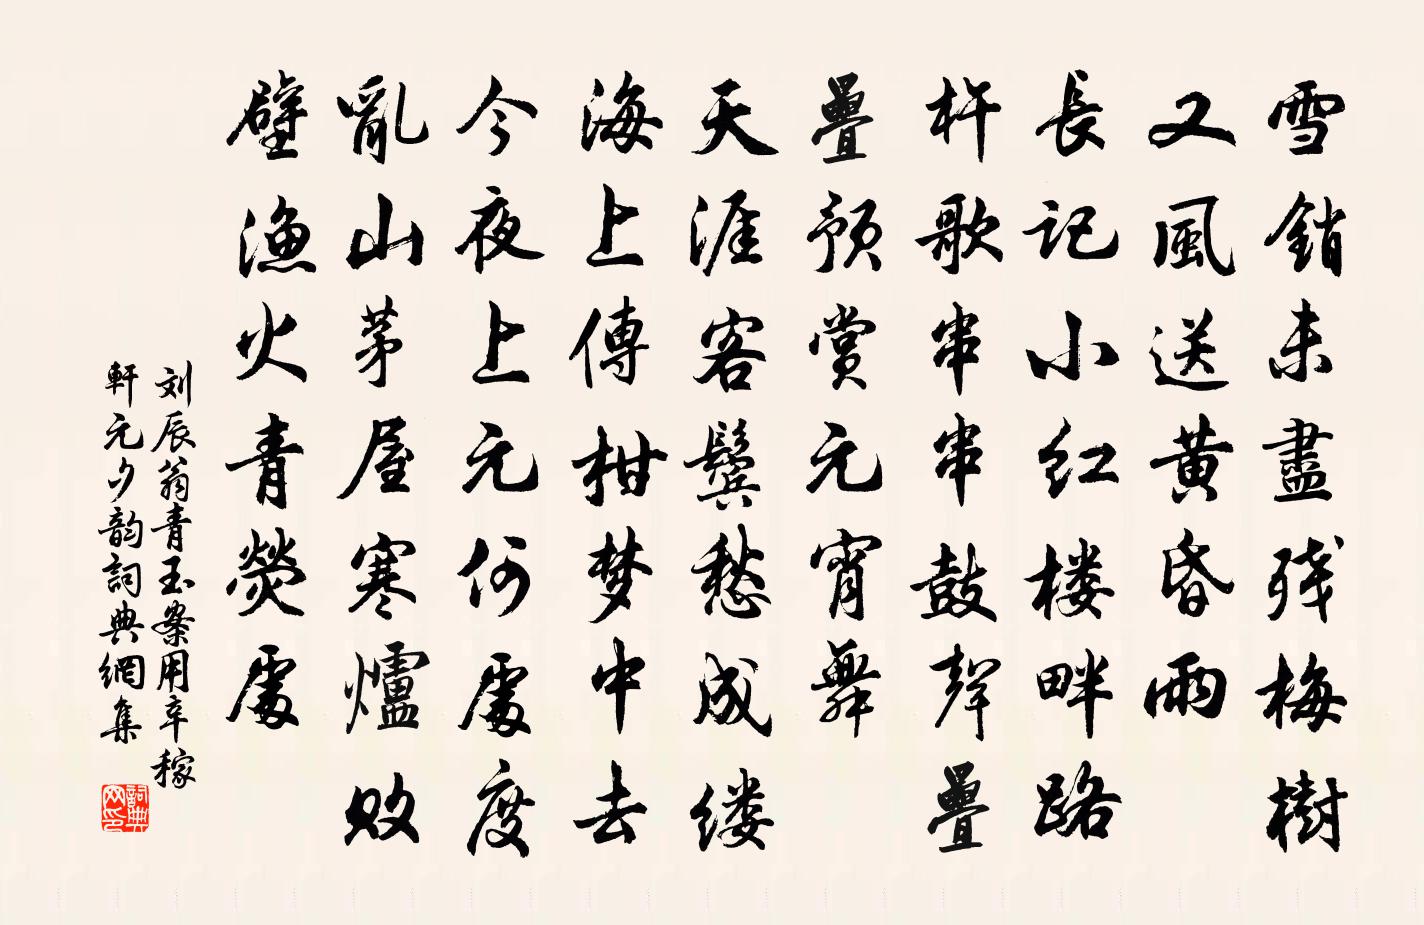 雪銷未盡残梅樹
又風送黄昏雨
長記小红楼畔路
杵歌串串鼓聲疊
疊预赏元宵舞
天涯客鬓愁成缕
海上傳柑梦中去
今夜上元何處度
亂山茅屋寒爐败
壁漁火青熒處
刘辰翁青玉案用辛稼
軒元夕韵詞典網集
詞典
网印